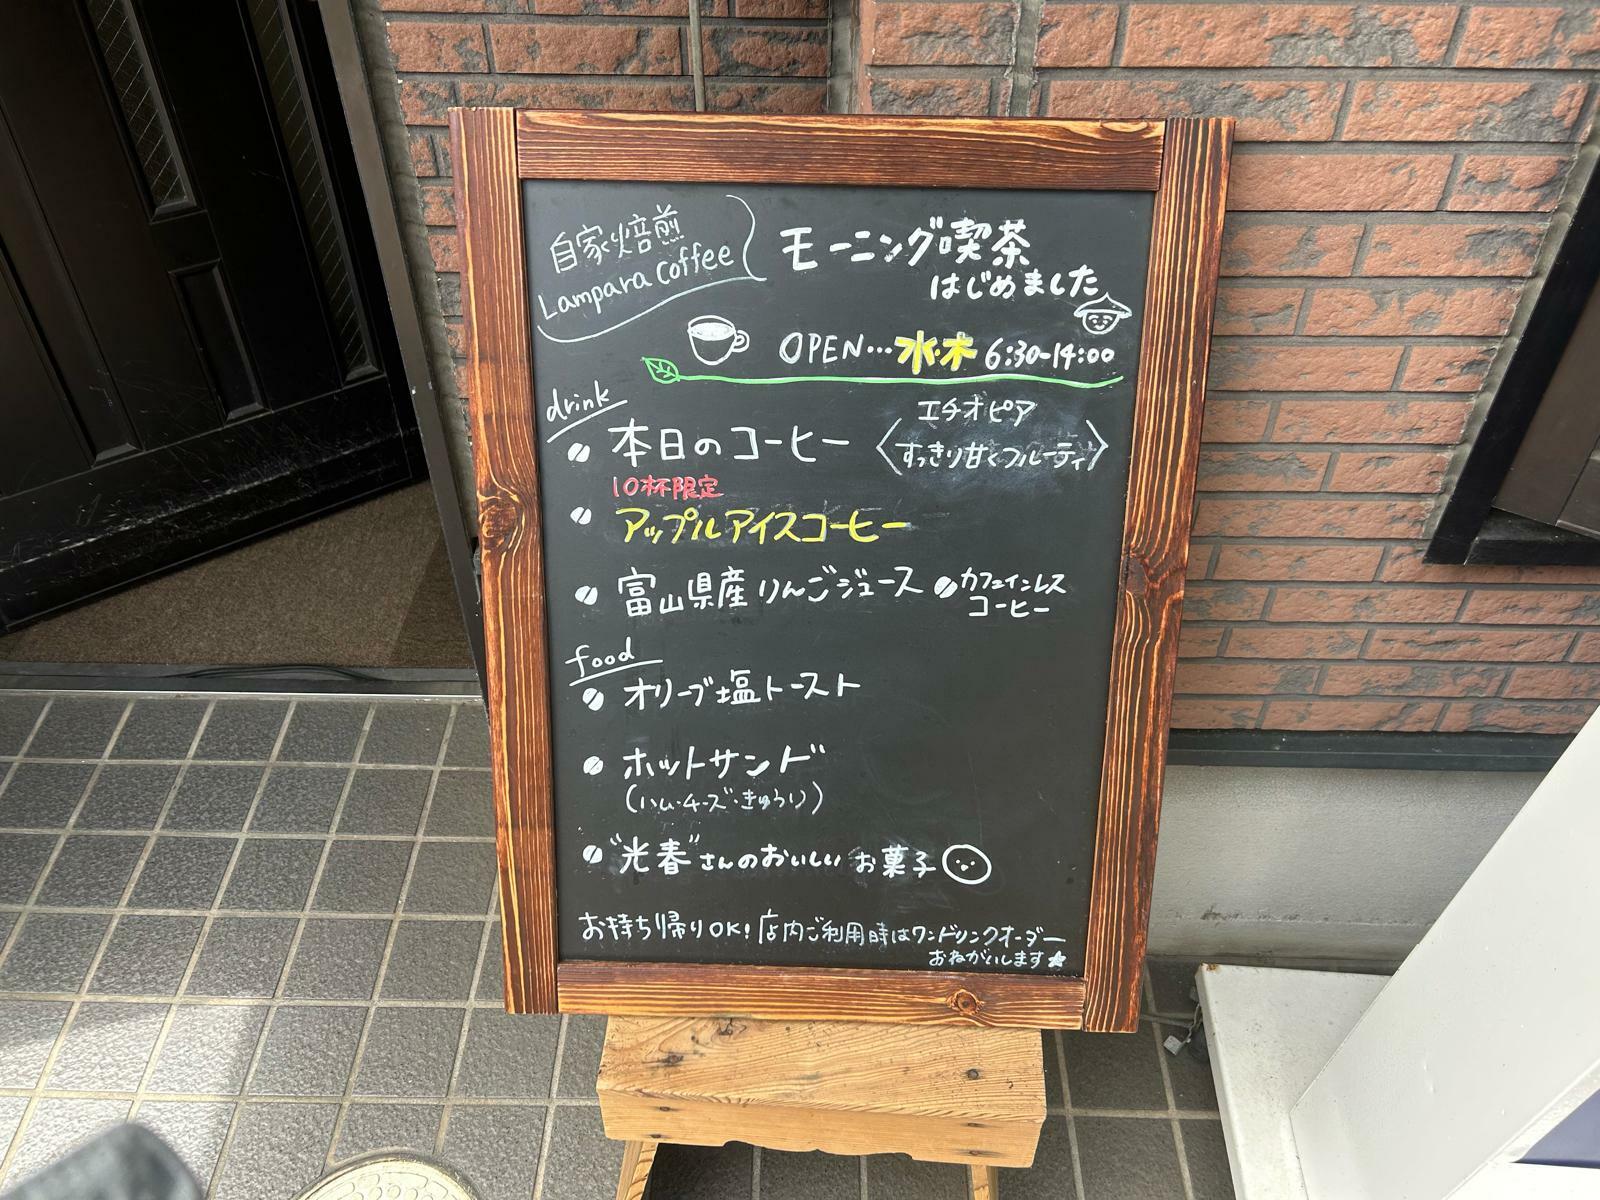 自家焙煎
Lampara coffee
モーニング喫茶
はじめました
OPEN…水・木 6:30-14:00
drink
本日のコーヒー
エチオピア
すっきり甘くフルーティ
10杯限定
アップルアイスコーヒー
富山県産りんごジュース
カフェインレス
コーヒー
food
オリーブ塩トースト
ホットサンド
(ハム・チーズ・きゅうり)
"光春"さんのおいしいお菓子
お持ち帰りOK!店内ご利用時はワンドリンクオーダー
おねがいします★